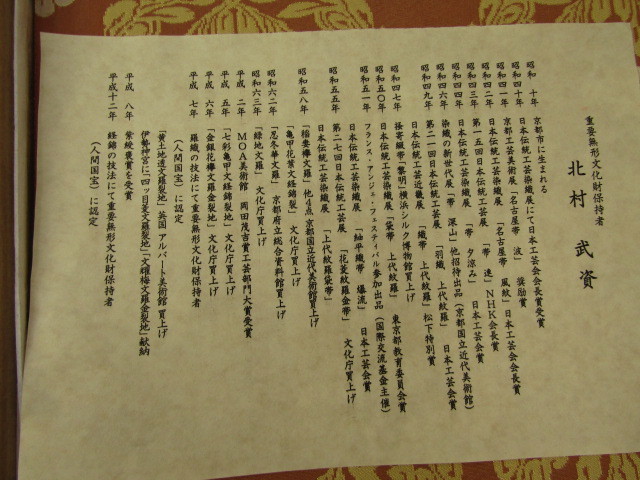 重要無形文化財保持者
北村 武資
昭和 十年 京都市に生まれる
昭和四十年 日本伝統工芸染織展にて日本工芸会会長賞受賞
昭和四一年 京都工芸美術展 「名古屋帯 波」 奨励賞
昭和四二年 日本伝統工芸染織展 「名古屋帯 風紋」 日本工芸会会長賞
昭和四三年 日本伝統工芸染織展 「帯 漣」 NHK会長賞
第一五回日本伝統工芸展 「帯 夕涼み」 日本工芸会賞
昭和四四年 日本伝統工芸染織展
昭和四六年 染織の新世代展 「帯 深山」 他招待出品 (京都国立近代美術館)
昭和四九年 第二一回日本伝統工芸展 「羽織 上代紋羅」 日本工芸会賞
日本伝統工芸近畿展 「織帯 上代紋羅」 松下特別賞
昭和四七年 捩寄綴帯「黎明」横浜シルク博物館買上げ
昭和五〇年 日本伝統工芸染織展 「袋帯 上代紋羅」 東京都教育委員会賞
昭和五一年 フランス・アンジェ・フェスティバル参加出品 (国際交流基金主催)
日本伝統工芸染織展 「紬平織帯 爆流」 日本工芸会賞
昭和五五年 第二七回日本伝統工芸展 「花菱紋羅金帯」 文化庁買上げ
日本伝統工芸染織展 「上代紋羅袋帯」
昭和五八年 「稲妻欅文羅」他4点 京都国立近代美術館買上げ
「亀甲花葉文経錦裂」 文化庁買上げ
昭和六二年 「忍冬華文羅」 京都府立総合資料館買上げ
昭和六三年 「緑地文羅」 文化庁買上げ
平成 二年 MOA美術館 岡田茂吉賞工芸部門大賞受賞
平成 五年 「七彩亀甲文経錦裂地」 文化庁買上げ
平成 六年 「金銀花欅文羅金裂地」 文化庁買上げ
平成 七年 羅織の技法にて重要無形文化財保持者
(人間国宝)に認定
「黄土地透文羅裂地」 英国 アルバート美術館 買上げ
伊勢神宮に「四ッ目菱文羅裂地」「大確梅文羅金裂地」献納
平成 八年 紫綬褒賞を受賞
平成十二年 経錦の技法にて重要無形文化財保持者
(人間国宝)に認定